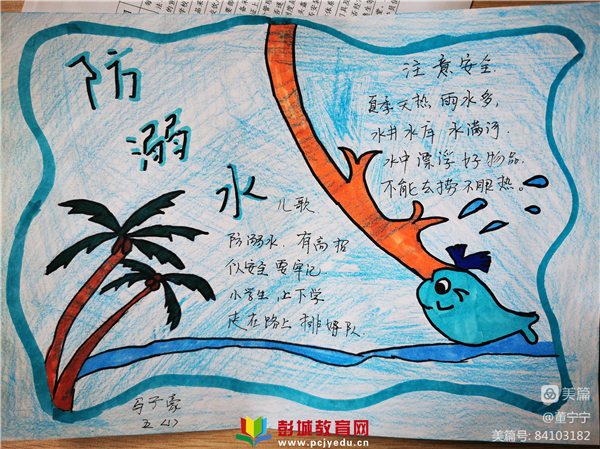 防溺水
儿歌
防溺水.有高招
似安全要牢记.
小学生上下学
走在路上排好队.
注意安全.
夏季天热雨水多,
水井水库水满河.
水中漂浮好物品.
不能去捞不眼热。
五(1)
彭城教育网
www.pcjyedu.cn
美篇
@董宁宁
美篇号: 84103182